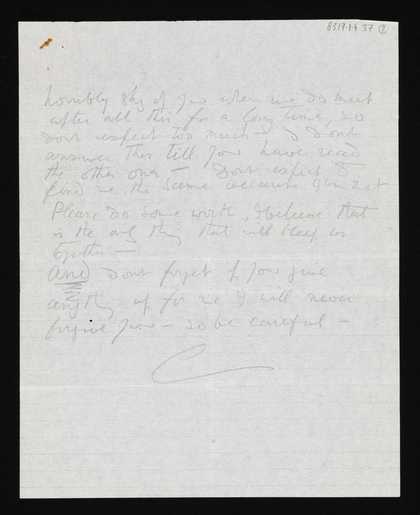 horribly shy of you when we do meet
after all this for a long time, so
dont expect too much — & dont
answer this till you have read
the other one — Dont expect to
find me the same because I'm not
Please do some work, I believe that
is the only thing that will keep us
together —
And dont forget if you give
anything up for me I will never
forgive you — so be careful —
C